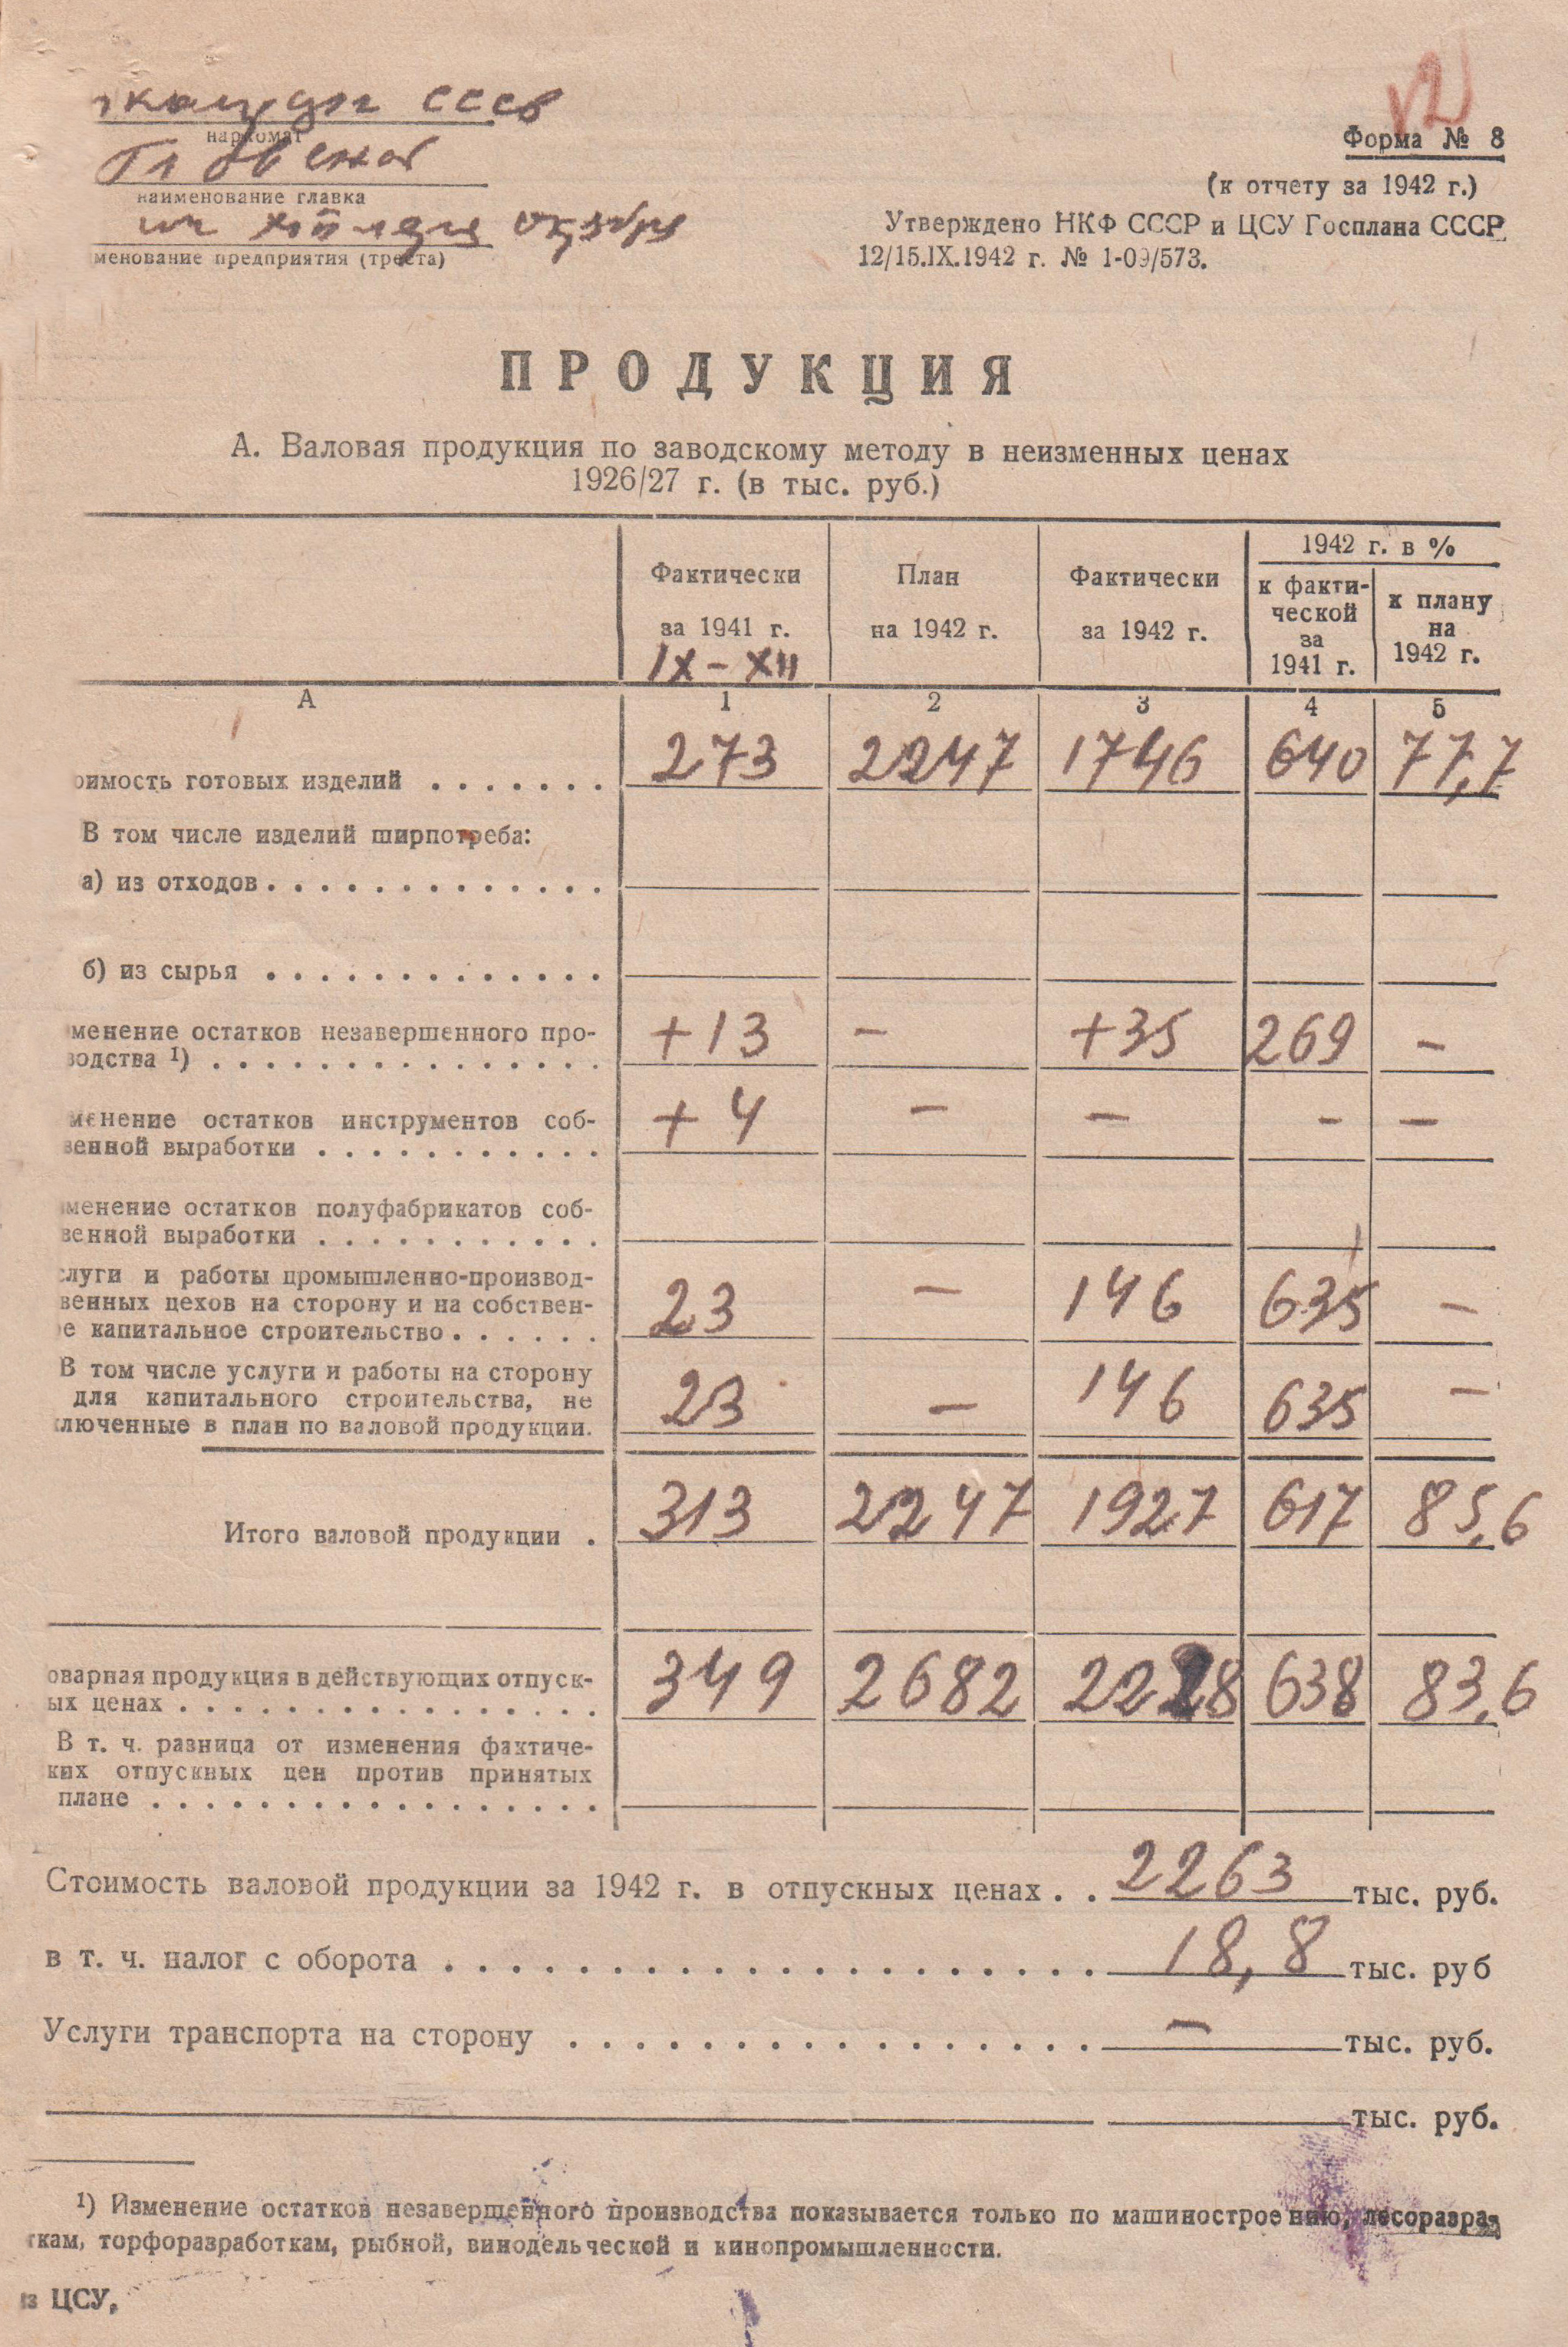 СССР
наркомат
наименование главка
менование предприятия (треста)
Форма № 8
(к отчету за 1942 г.)
Утверждено НКФ СССР и ЦСУ Госплана СССР
12/15.IX.1942 г. № 1-09/573.
ПРОДУКЦИЯ
А. Валовая продукция по заводскому методу в неизменных ценах
1926/27 г. (в тыс. руб.)
Фактически за 1941 г. IX – XII
План на 1942 г.
Фактически за 1942 г.
1942 г. в %
к факти-
ческой
за
1941 г.
к плану
на
1942 г.
А 1 2 3 4 5
оимость готовых изделий . . . . . . . 273 2247 1746 640 77,7
В том числе изделий ширпотреба:
а) из отходов . . . . . . . . . . . . .
б) из сырья . . . . . . . . . . . . .
менение остатков незавершенного про-
водства 1) . . . . . . . . . . . . . . . +13 – +35 269 –
менение остатков инструментов соб-
венной выработки . . . . . . . . . . . +4 – – – –
менение остатков полуфабрикатов соб-
венной выработки . . . . . . . . . . .
слуги и работы промышленно-производ-
венных цехов на сторону и на собствен-
е капитальное строительство . . . . . . 23 – 146 635 –
В том числе услуги и работы на сторону
для капитального строительства, не
ключенные в план по валовой продукции. 23 – 146 635 –
Итого валовой продукции . 313 2247 1927 617 85,6
оварная продукция в действующих отпуск-
ых ценах . . . . . . . . . . . . . . . . 349 2682 2228 638 83,6
В т. ч. разница от изменения фактиче-
ких отпускных цен против принятых
плане . . . . . . . . . . . . . . . . .
Стоимость валовой продукции за 1942 г. в отпускных ценах . . 2263 тыс. руб.
в т. ч. налог с оборота . . . . . . . . . . . . . . . . . . . . . . 18,8 тыс. руб
Услуги транспорта на сторону . . . . . . . . . . . . . . . . – тыс. руб.
тыс. руб.
1) Изменение остатков незавершенного производства показывается только по машиностроению, лесоразра-
ткам, торфоразработкам, рыбной, винодельческой и кинопромышленности.
из ЦСУ,